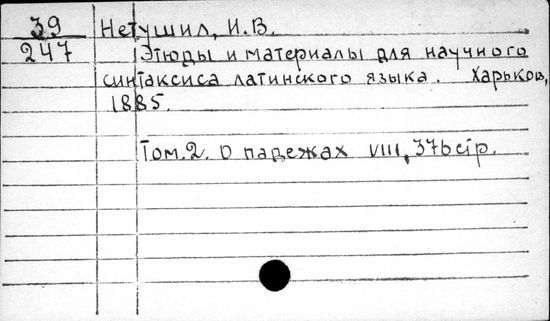 39 Нетушил, И.В.
247 Этюды и материалы для научного
синтаксиса латинского языка. Харьков,
1885.
Том.2. О падежах VIII, 376 стр.